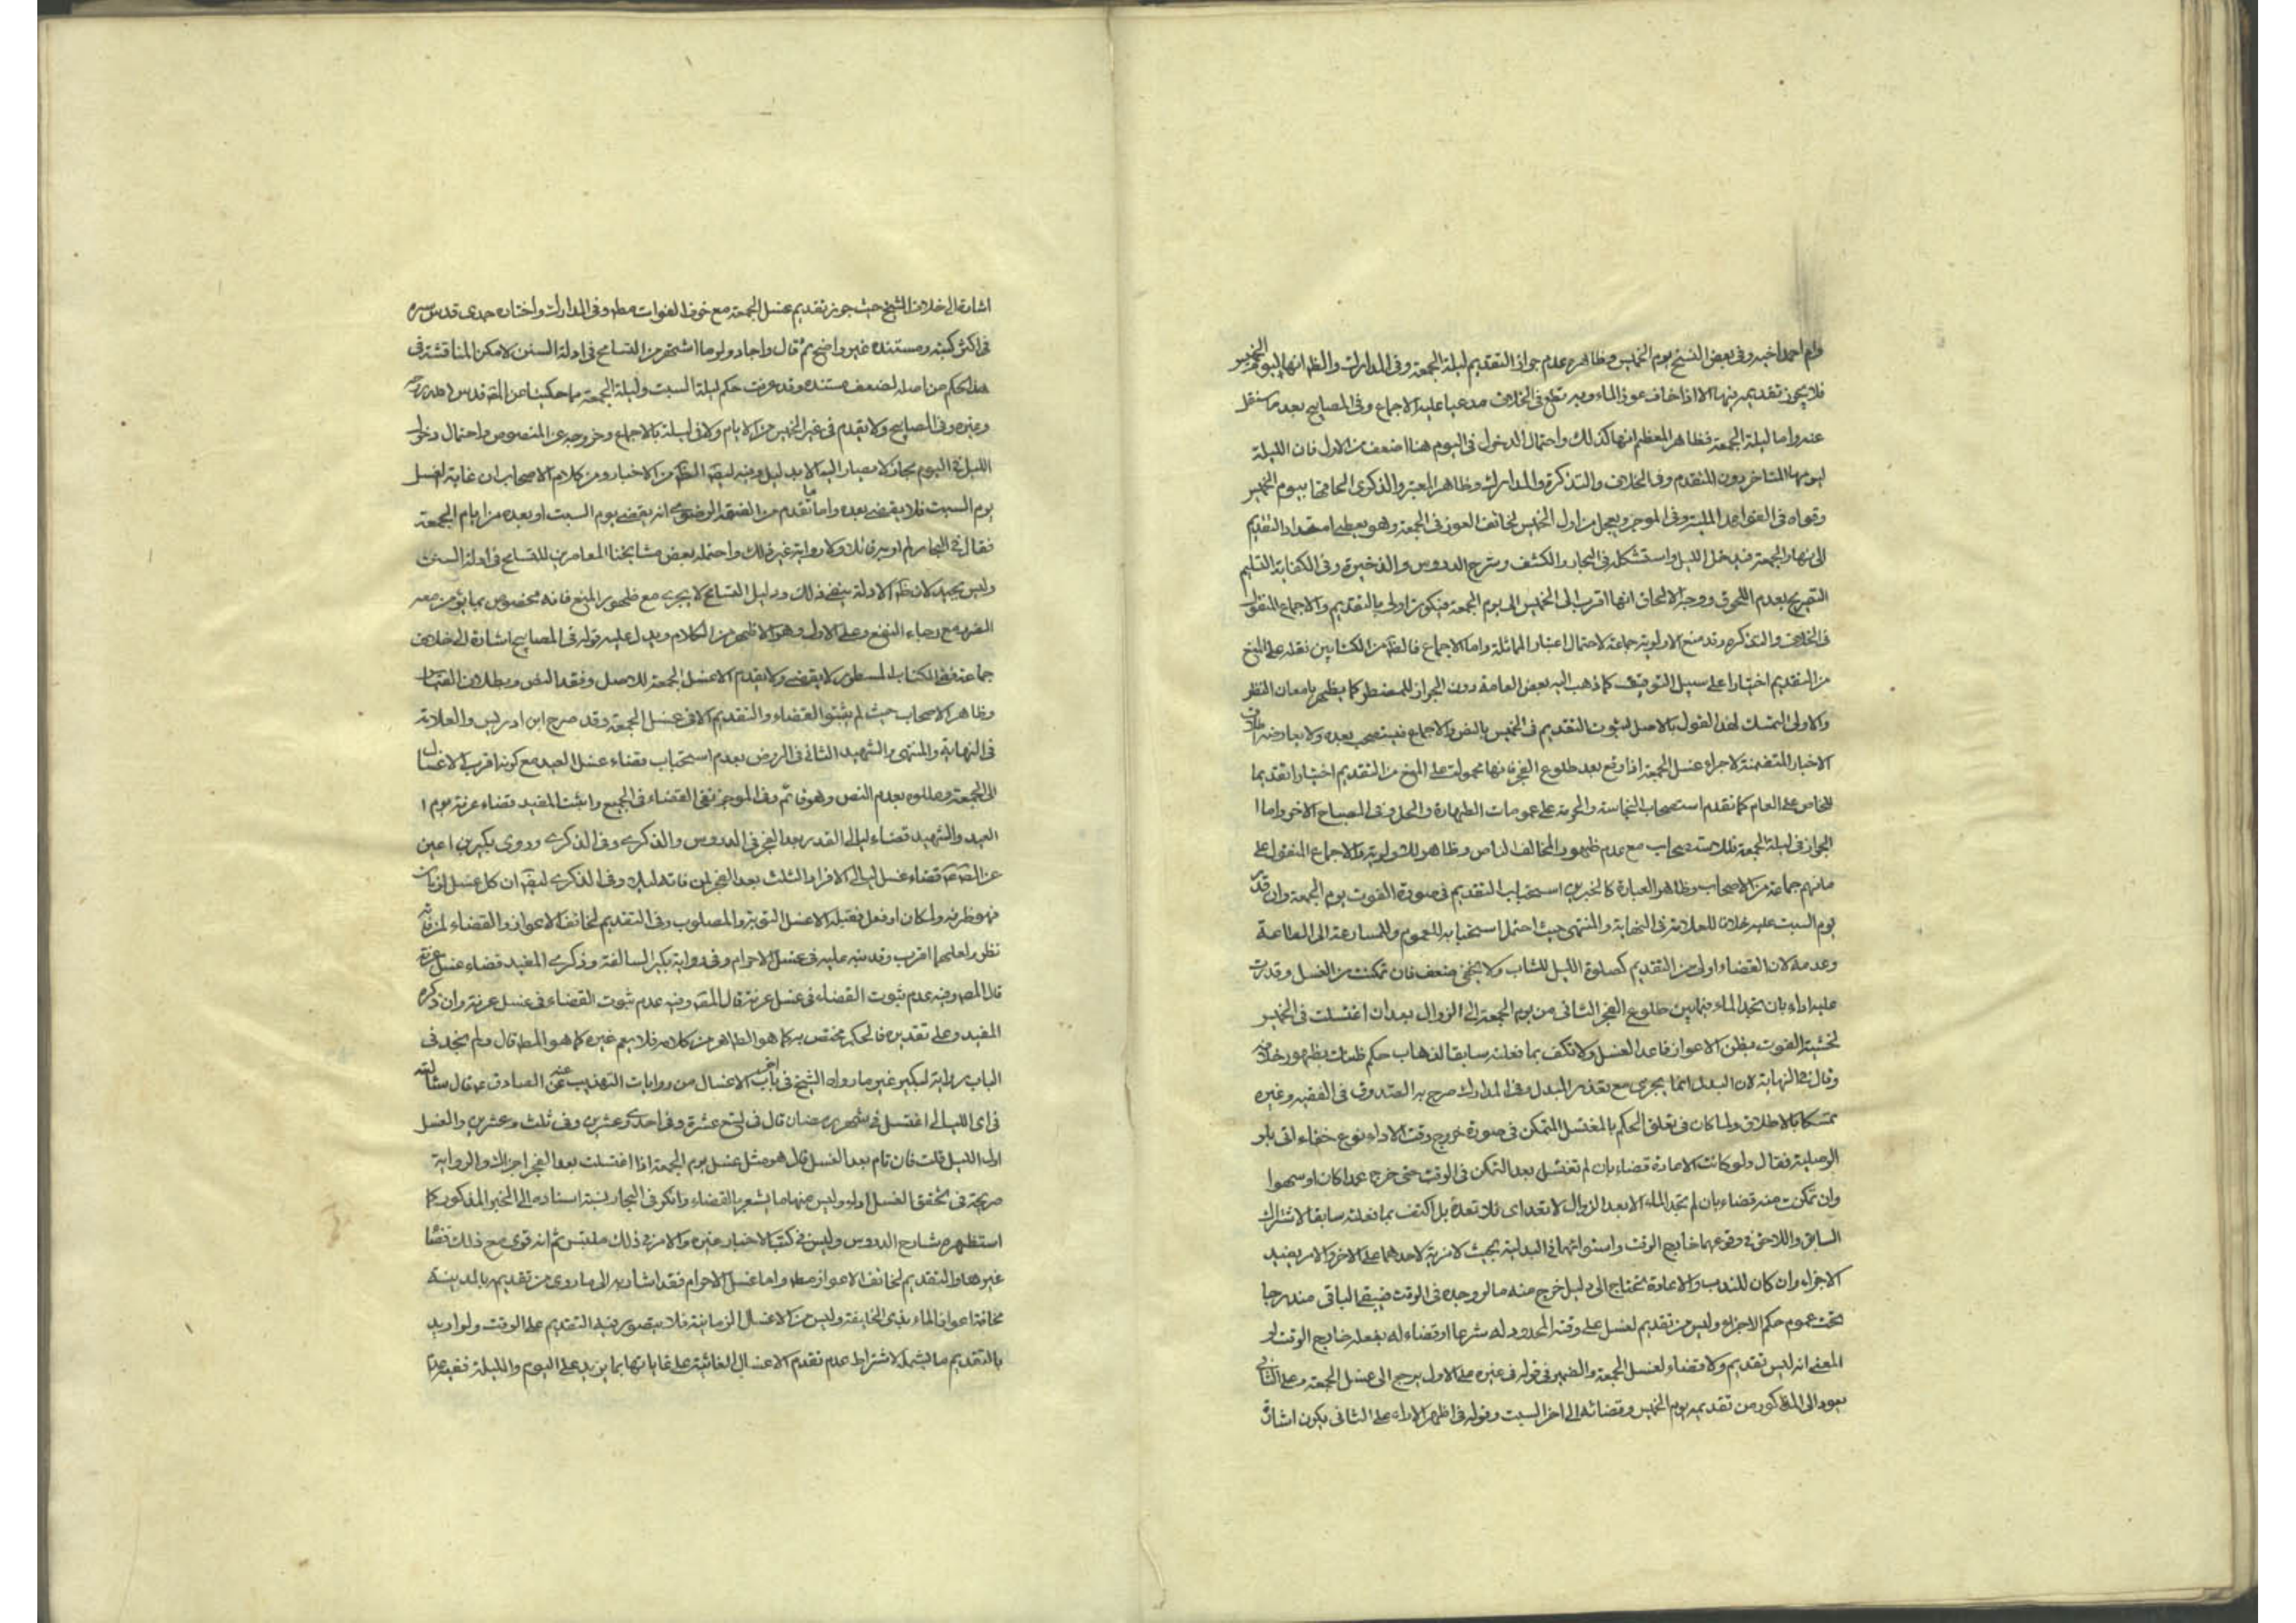 وام احمد اخبه وفى بعض النسخ يوم الخميس وظاهره عدم جواز التقديم ليلة الجمعة وفى المدارك والظ انها ليوم الخميس
فلا يجوز تقديمه فيها الا اذا خاف عوز الماء وبه قطع فى الخلاف مدعيا عليه الاجماع وفى المصابيح بعد ما نقل
عنه واما ليلة الجمعة فظاهر المعظم انها كذلك واحتمال الدخول فى اليوم هنا اضعف من الاول فان الليلة
ليومها المتاخر دون المتقدم وفى الخلاف والتذكرة والمدارك وظاهر المعتبر والذكرى الحاقها بيوم الخميس
وقواه فى الفوائد الملية وفى الموجز ويعجل من اول الخميس لخائف العوز فى الجمعة وهو يعطى امتداد التقديم
الى نهار الجمعة فيدخل الليل واستشكله فى البحار والكشف وشرح الدروس والذخيرة وفى الكفاية التليم
التصريح بعدم اللحوق ووجه الالحاق انها اقرب الى الخميس الى يوم الجمعة فيكون اولى بالتقديم والاجماع المنقول
فى الخلاف والتذكرة وقد منع الاولوية جماعة لاحتمال اعتبار المماثلة واما الاجماع فالظ من الكتابين نقله على المنع
من التقديم اختيارا على سبيل التوقيت كما ذهب اليه بعض العامة دون الجواز للمضطر كما يظهر بامعان النظر
والاولى التمسك لهذا القول بالاصل لثبوت التقديم فى الخميس بالنص والاجماع فيستصحب بعده ولا يعارضه اطلاق
الاخبار المتضمنة لاجزاء غسل الجمعة اذا وقع بعد طلوع الفجر فانها محمولة على المنع من التقديم اختيارا تقديما
للخاص على العام كما تقدم استصحاب النجاسة والحرمة على عمومات الطهارة والحل وفى المصباح الاخر واما
الجواز فى ليلة الجمعة فللاستصحاب مع عدم ظهور المخالف الناص وظاهر للاولوية والاجماع المنقول على
مانهم جماعة من الاصحاب وظاهر العبارة كالخبرين استحباب التقديم فى صورة الفوت يوم الجمعة وان قدر
يوم السبت عليه خلافا للعلامة فى النهاية والمنتهى حيث احتمل استحبابه للعموم وللمسارعة الى الطاعة
وعدمه لان القضاء اولى من التقديم كصلوة الليل للشاب ولا يخفى ضعفه فان تمكنت من الغسل وقدرت
عليه اداء بان تجد الماء فيما بين طلوع الفجر الثانى من يوم الجمعة الى الزوال بعد ان اغتسلت فى الخميس
لخشية الفوت بظن الاعواز فاعد الغسل ولا تكف بما فعلته سابقا لذهاب حكم ظنك بظهور خلافه
وقال فى النهاية لان البدل انما يجزى مع تعذر المبدل وفى المدارك صرح به الصدوق فى الفقيه وغيره
تمسكا بالاطلاق ولما كان فى تعلق الحكم بالمغتسل المتمكن فى صورة خروج وقت الاداء نوع خفاء اتى بلو
الوصلية فقال ولو كانت الاعادة قضاء بان لم تغتسل بعد التمكن فى الوقت حتى خرج عمدا كان او سهوا
وان تمكنت منه قضاء بان لم تجد الماء الا بعد الزوال لا تعد اى فلا تعده بل اكتف بما فعلته سابقا لاشتراك
السابق واللاحق فى وقوعهما خارج الوقت واستوائهما فى البدلية بحيث لا مزية لاحدهما على الاخر والامر يفيد
الاجزاء وان كان للندب والاعادة تحتاج الى دليل خرج منه ما لو وجده فى الوقت فيبقى الباقى مندرجا
تحت عموم حكم الاجزاء وليس من تقديم لغسل على وقته المحدود له شرعا او قضاء له بفعله خارج الوقت لو
المعنى انه ليس تقديم ولا قضاء لغسل الجمعة والضمير فى قوله فى غيره على الاول يرجع الى غسل الجمعة وعلى الثانى
يعود الى المذكور من تقديمه يوم الخميس وقضائه الى اخر السبت وقوله فى اظهر الاراء على الثانى يكون اشارة
اشارة الى خلاف الشيخ حيث جوز تقديم غسل الجمعة مع خوف الفوات مط وفى المدارك واختاره جدى قدس سره
فى اكثر كتبه ومستنده غير واضح ثم قال واجاد ولو ما اشتهر من التسامح فى ادلة السنن لامكن المناقشة فى
هذا الحكم من اصله لضعف مستنده وقد عرفت حكم ليلة السبت وليلة الجمعة مما حكينا عن المص قدس الله سره
وغيره وفى المصابيح ولا يقدم فى غير الخميس من الايام ولا فى ليلة بالاجماع وخروجه عن المنصوص واحتمال دخول
الليل فى اليوم مجاز لا يصار اليه الا بدليل وفيه ايضا الظ من الاخبار ومن كلام الاصحاب ان غاية لغسل
يوم السبت فلا يقضى بعده واما ما تقدم من الفقه الرضوى انه يقضى يوم السبت او بعده من ايام الجمعة
فقال فى البحار لم ار به قائلا ولا رواية غير ذلك واحتمله بعض مشايخنا المعاصرين للتسامح فى ادلة السنن
وليس بجيد لان ظ الادلة ينفى ذلك ودليل التسامح لا يجرى مع ظهور المنع فانه مخصوص بما يؤمن معه
الضرر مع رجاء النفع وعلى الاول وهو الاظهر من الكلام ويدل عليه قوله فى المصابيح اشارة الى خلاف
جماعة ففى الكتاب المسطور لا يقضى ولا يقدم الا غسل الجمعة للاصل وفقد النص وبطلان القياس
وظاهر الاصحاب حيث لم يثبتوا القضاء والتقديم الا فى غسل الجمعة وقد صرح ابن ادريس والعلامة
فى النهاية والمنتهى والشهيد الثانى فى الروض بعدم استحباب قضاء غسل العيد مع كونه اقرب الاغسال
الى الجمعة وعللوه بعدم النص وهو قائم وفى الموجز نفى القضاء فى الجميع واثبت المفيد قضاء عرفة يوم
العيد والشهيد قضاء ليالى القدر بعد الفجر فى الدروس والذكرى وفى الذكرى وروى بكير بن اعين
عن الصادق قضاء غسل ليالى الافراد الثلث بعد الفجر لمن فاته ليلا وفى الذكرى ايضا ان كل غسل لزمان
فهو ظرفه ولمكان او فعل فقبله الا غسل التوبة والمصلوب وفى التقديم لخائف الاعواز والقضاء لمن فاته
نظر ولعلهما اقرب وقد نبه عليه فى غسل الاحرام وفى رواية بكير السالفة وذكرى المفيد قضاء غسل عرفة
قال المص وفيه عدم ثبوت القضاء فى غسل عرفة قال المص وفيه عدم ثبوت القضاء فى غسل عرفة وان ذكره
المفيد وعلى تقديره فالحكم مختص به كما هو الظاهر من كلامه فلا يعم غيره كما هو المط قال ولم نجد فى
الباب رواية لبكير غير ما رواه الشيخ فى باب اخر الاغسال من روايات التهذيب عنه عن الصادق ع قال سئلته
فى اى الليالى اغتسل فى شهر رمضان قال فى تسع عشرة وفى احدى وعشرين وفى ثلث وعشرين والغسل
اول الليل قلت فان نام بعد الغسل قال هو مثل غسل يوم الجمعة اذا اغتسلت بعد الفجر اجزاك والرواية
صريحة فى تحقق الغسل اولا وليس منها ما يشعر بالقضاء وانكر فى البحار نسبة اسناده الى الخبر المذكور كما
استظهره شارح الدروس وليس فى كتب الاخبار غيره والامر فى ذلك ملتبس ثم انه قوى مع ذلك قضاء
غيرها والتقديم لخائف الاعواز مط واما غسل الاحرام فقد اشار به الى ما روى من تقديمه بالمدينة
مخافة اعواز الماء بذى الحليفة وليس من الاغسال الزمانية فلا يتصور فيه التقديم على الوقت ولو اريد
بالتقديم ما يشمله لاشتراط عدم تقدم الاعنسال الغائية على غاياتها بما يزيد على اليوم والليلة ففيه